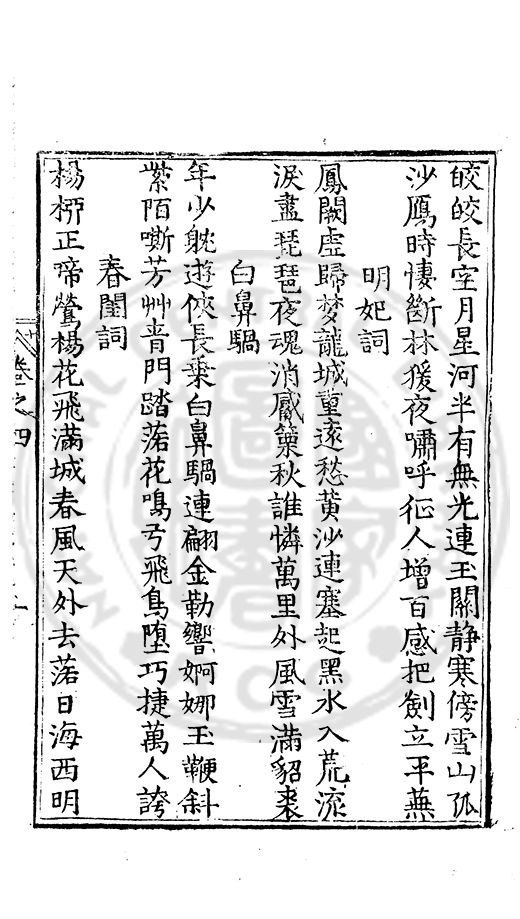 皎皎長空月星河半有無光連玉關静寒傍雪山孤
沙鴈時悽斷林猨夜嘯呼征人增百感把劍立平蕪
明妃詞
鳳闕虛歸梦龍城重遠愁黄沙連塞起黑水入荒流
淚盡琵琶夜魂消觱篥秋誰憐萬里外風雪滿貂裘
白鼻騧
年少躭遊俠長乗白鼻騧連翩金勒響婀娜玉鞭斜
紫陌嘶芳艸青門踏落花鳴弓飛鳥墮巧捷萬人誇
春閨詞
楊桺正啼鶯楊花飛滿城春風天外去落日海西明
卷之四